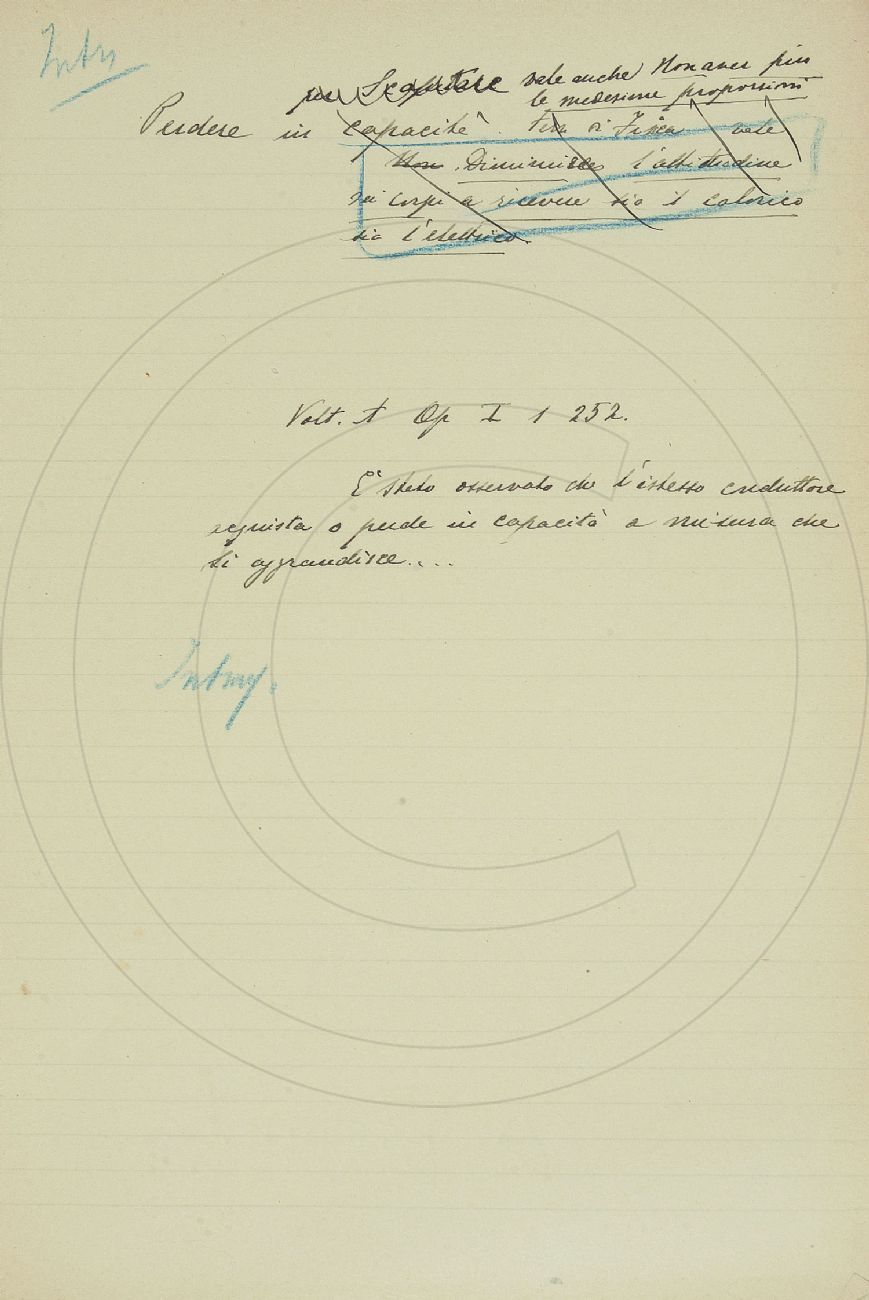 Intr
per Scapitare vale anche Non aver più
le medesime proporzioni
Perdere in capacità. Term di Fisica vale
Non Diminuire l'attitudine
dei corpi a ricevere sia il calorico
sia l'elettrico.
Volt. A Op I 1 252.
È stato osservato che l'istesso conduttore
acquista o perde in capacità a misura che
si aggrandisce....